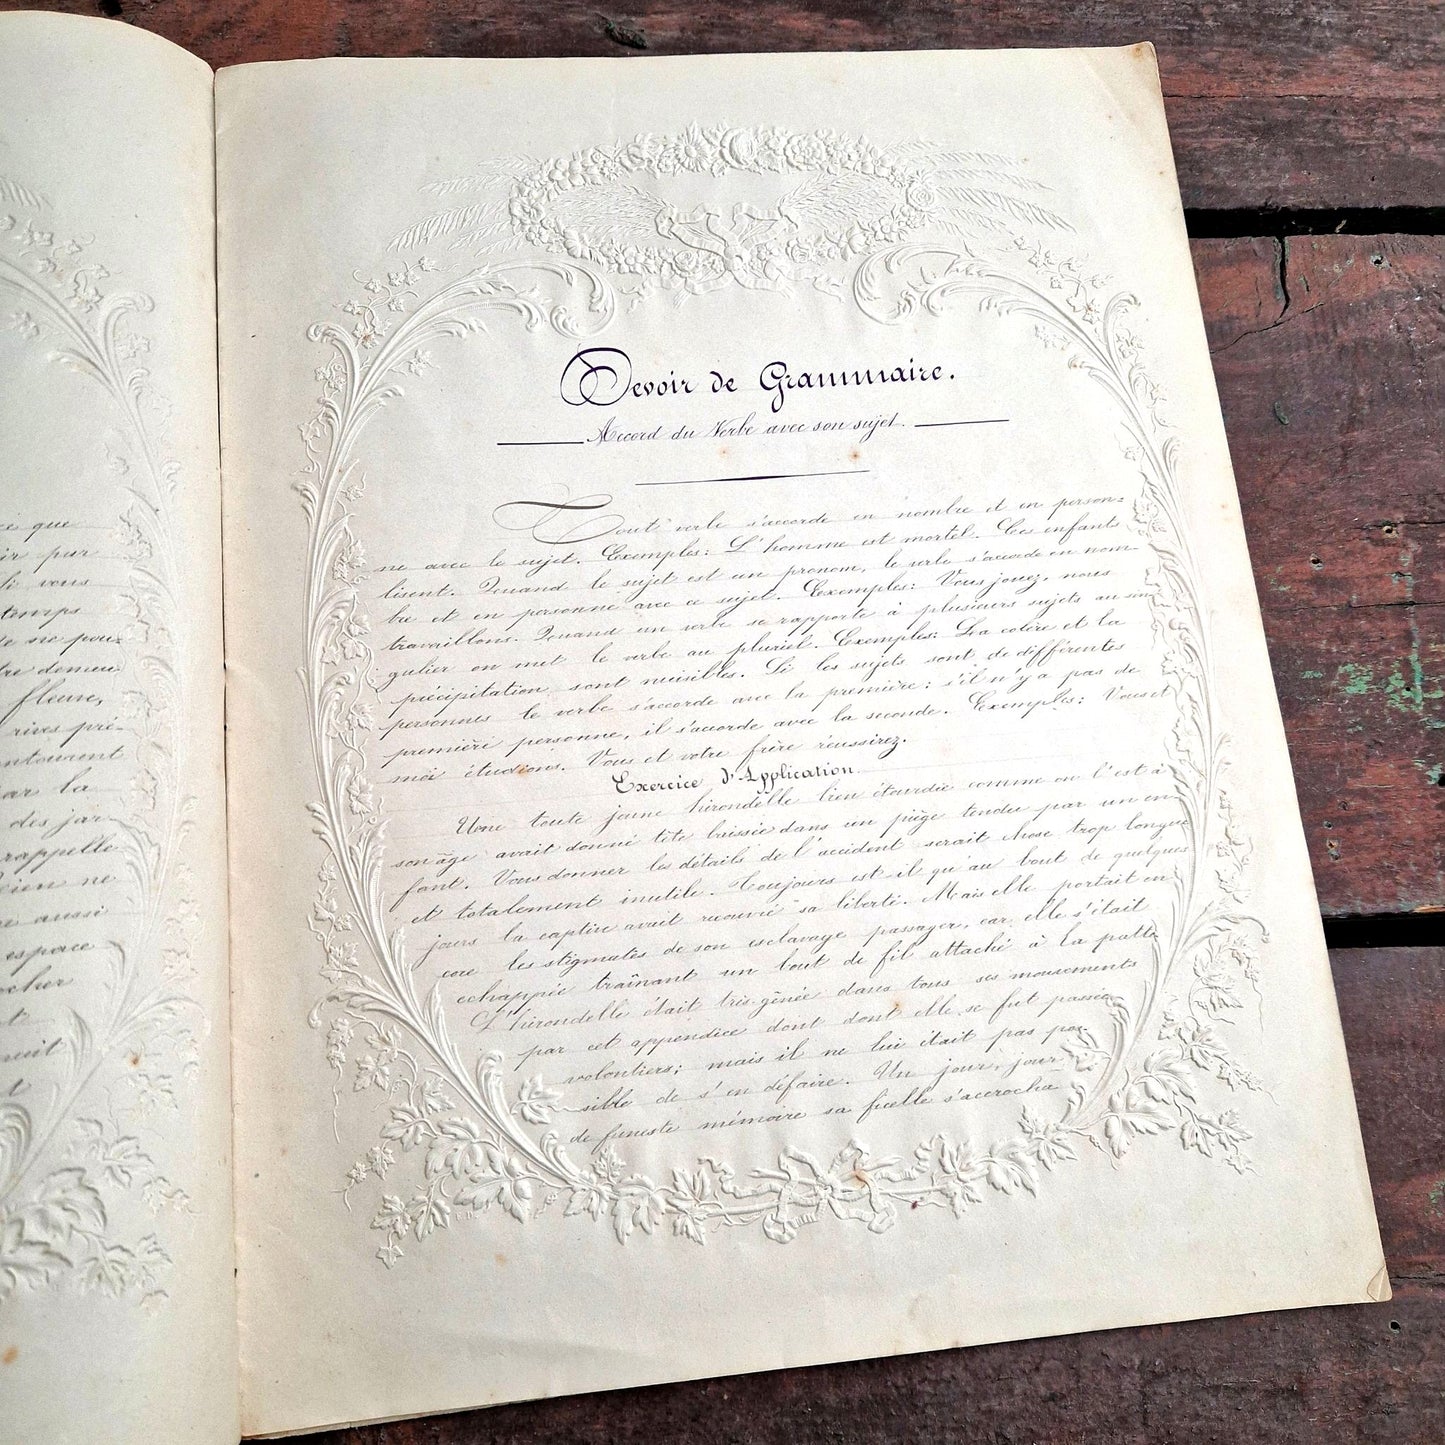 ce que
ir par
Si vous
temps
te ne pou-
tre demeu
fleure,
rives pré-
ntourent
ar la
des jar
rappelle
Rien ne
aussi
espace
cher
nuit
Devoir de Grammaire.
Accord du Verbe avec son sujet.
Tout verbe s'accorde en nombre et en person=
ne avec le sujet. Exemples: L'homme est mortel. Ces enfants
lisent. Quand le sujet est un pronom, le verbe s'accorde en nom-
bre et en personne avec ce sujet. Exemples: Vous jouez, nous
travaillons. Quand un verbe se rapporte à plusieurs sujets au sin
gulier on met le verbe au pluriel. Exemples: La colère et la
précipitation sont nuisibles. Si les sujets sont de différentes
personnes le verbe s'accorde avec la première: s'il n'y a pas de
première personne, il s'accorde avec la seconde. Exemples: Vous et
moi étudions. Vous et votre frère réussirez.
Exercice d'Application
Une toute jeune hirondelle bien étourdie comme on l'est à
son âge avait donné tête baissée dans un piège tendu par un en
fant. Vous donner les détails de l'accident serait chose trop longue
et totalement inutile. Toujours est-il qu'au bout de quelques
jours la captive avait recouvré sa liberté. Mais elle portait en
core les stigmates de son esclavage passager, car elle s'était
echappée traînant un bout de fil attaché à la patte
L'hirondelle était très-gênée dans tous ses mouvements
par cet appendice dont dont elle se fut passée
volontiers; mais il ne lui était pas pos-
sible de s'en défaire. Un jour, jour
de funeste mémoire sa ficelle s'accrocha